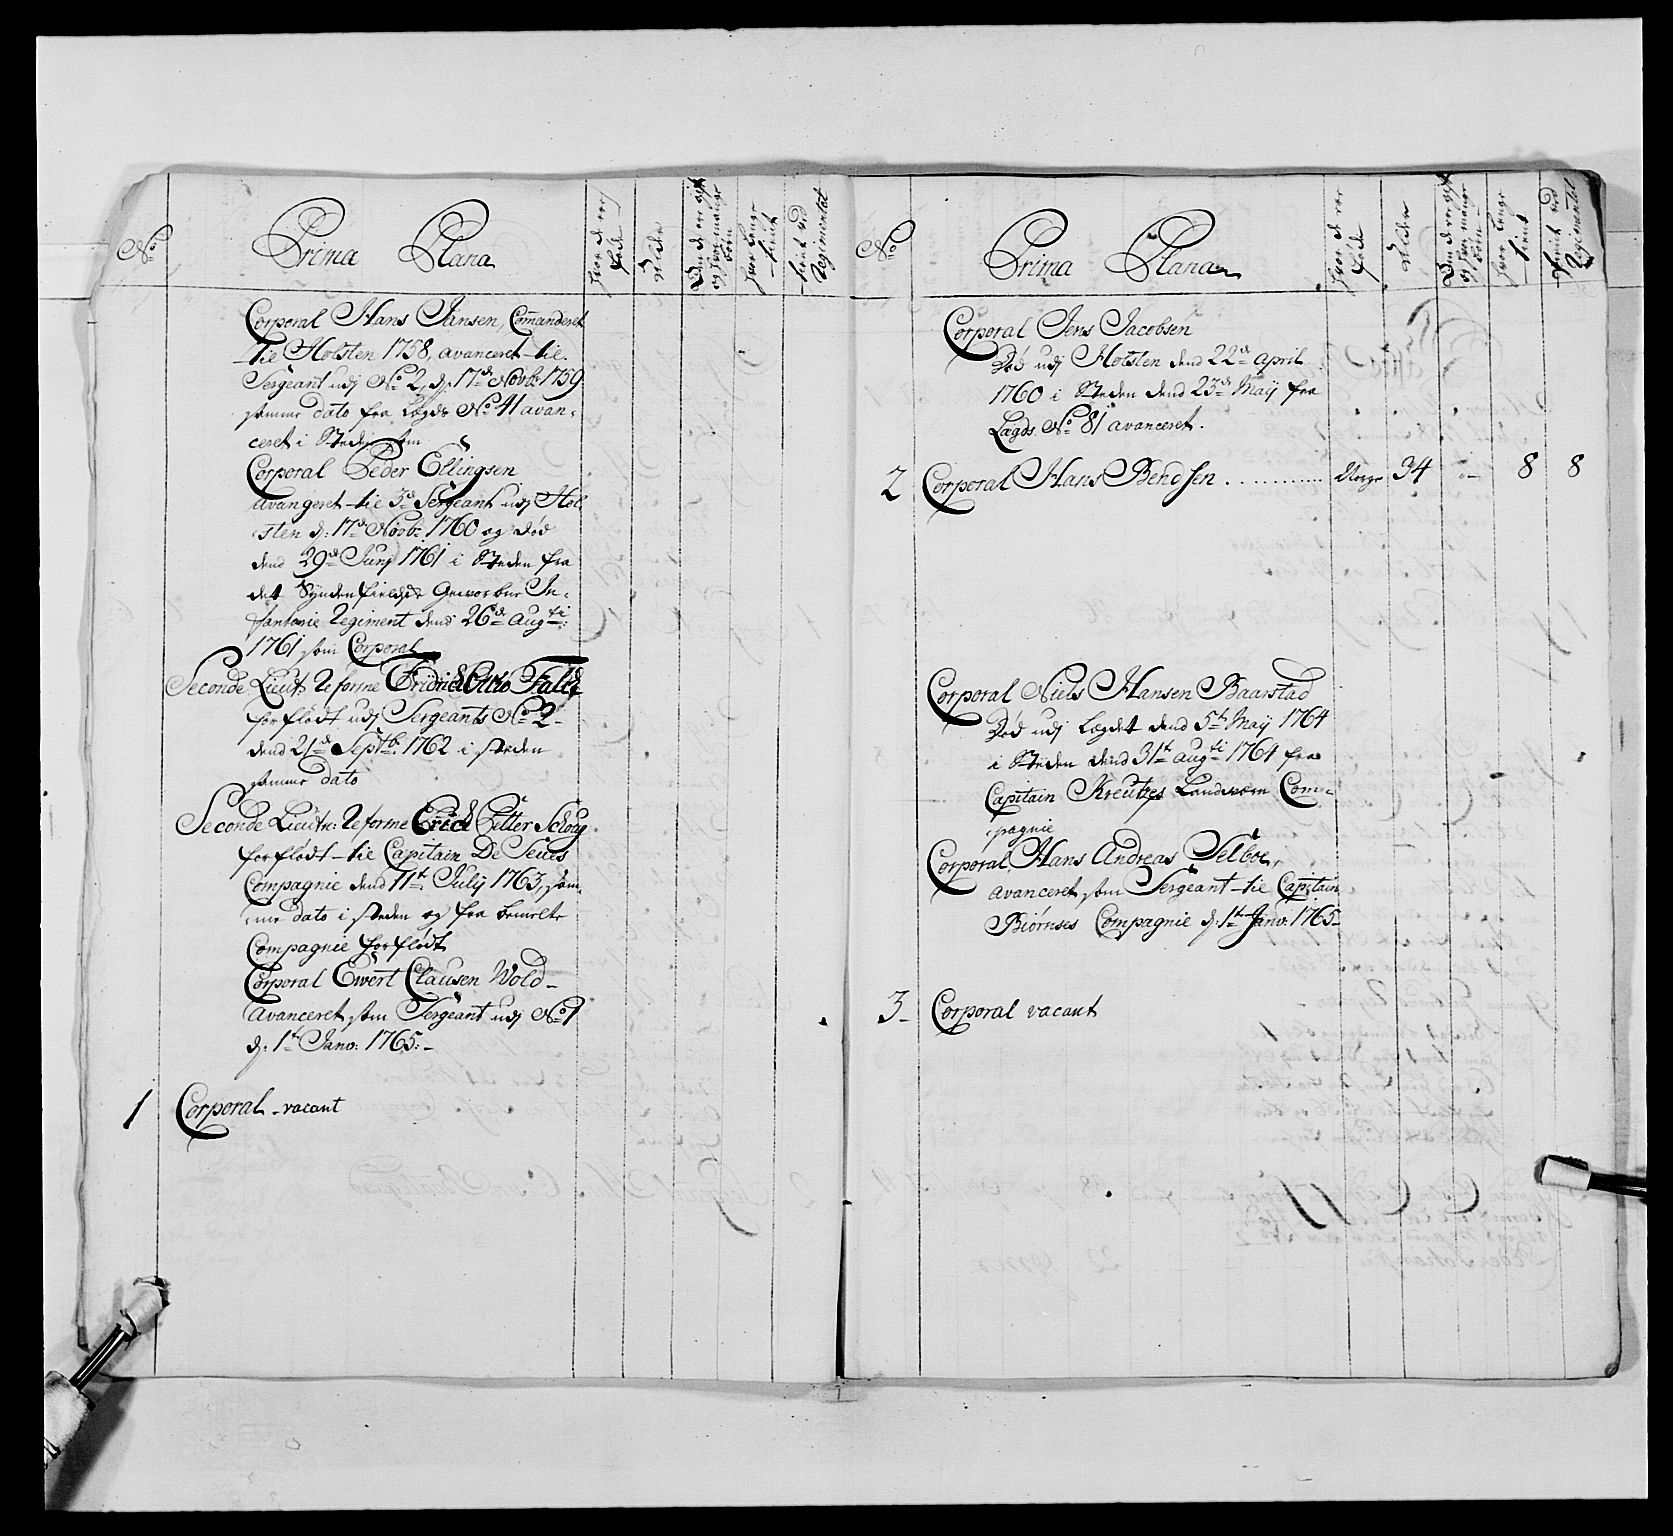 No
Prima Plana
Hvor de er
fødde
Alder
Om de er gift
og hvor mange
børn
Hvor længe
tient
tient ved
Regimentet
Corporal Hans Jansen, Commanderet
til Holsten 1758, avanceret til
Sergeant udj No 2, d: 17de Novbr 1759
samme dato fra Lægds No 41 avan-
ceret i Steden som
Corporal Peder Ellingsen
avangeret til 3de Sergeant udj Hol-
sten d: 17de Novbr: 1760 og død
dend 29de Junj 1761 i Steden fra
det Syndenfieldske Geworbne In-
fanterie Regiment dend 26de Augti:
1761 som Corporal
Seconde Lieut: Reforme Fridrich Otto
forflødt udj Sergeants No 2
dend 21de Septbr: 1762 i steden
samme dato
Seconde Lieutn: Reforme Erich Petter Schøug
forflødt til Capitain De Seues
Compagnie dend 11te July 1763, sam-
me dato i steden og fra bemelte
Compagnie forflødt
Corporal Ewert Clausen Wold
Avanceret som Sergeant udj No 1
d: 1te Janv: 1765:
1 Corporal vacant
No
Prima Plana
Hvor de er
fødde
Alder
Om de er gift
og hvor mange
børn
Hvor længe
tient
tient ved
Regimentet
Corporal Jens Jacobsen
Død udj Holsten dend 22de April
1760 i Steden dend 23de Maij fra
Lægds No 81 avanceret.
2 Corporal Hans Bendsen . . . . . . . . . . Norge 34 1 8 8
Corporal Niels Hansen Baarstad
Død udj Lægdet dend 5te Maij 1764
i Steden dend 31te Augti 1764 fra
Capitain Kreutzes Landværn Com-
pagnie
Corporal Hans Andreas Selboe,
avanceret som Sergeant til Capitain
Biørnses Compagnie d: 1te Janv: 1765
3 Corporal vacant